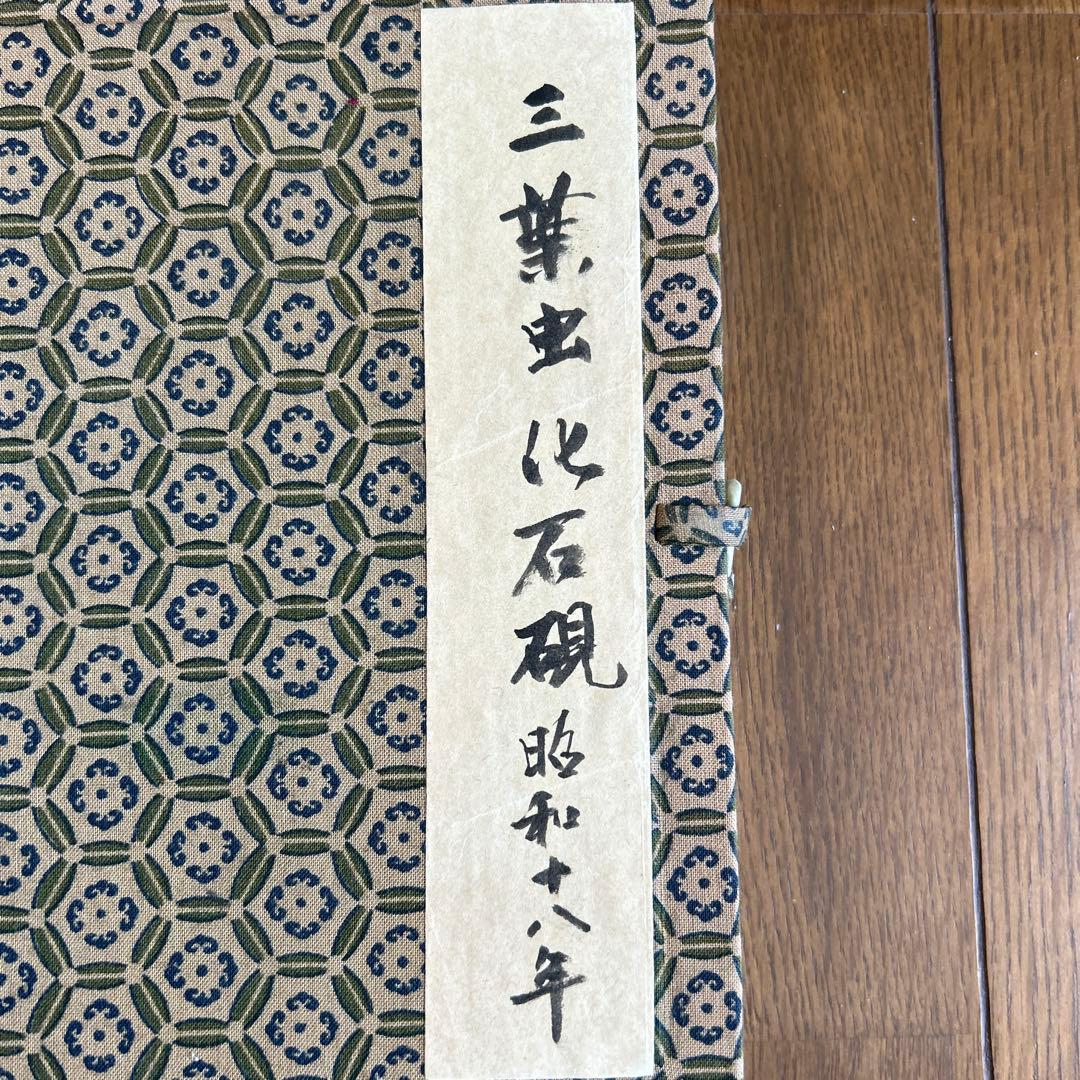 三葉虫化石硯昭和十八年